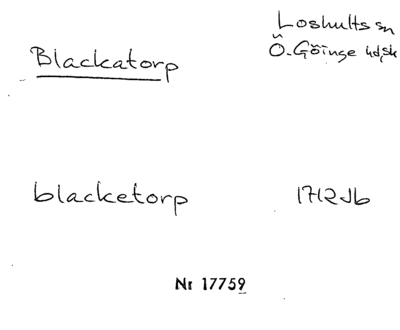 Blackatorp
Loshults sn
Ö. Göinge hd,sk
blacketorp 1712 Jb
Nr 17759